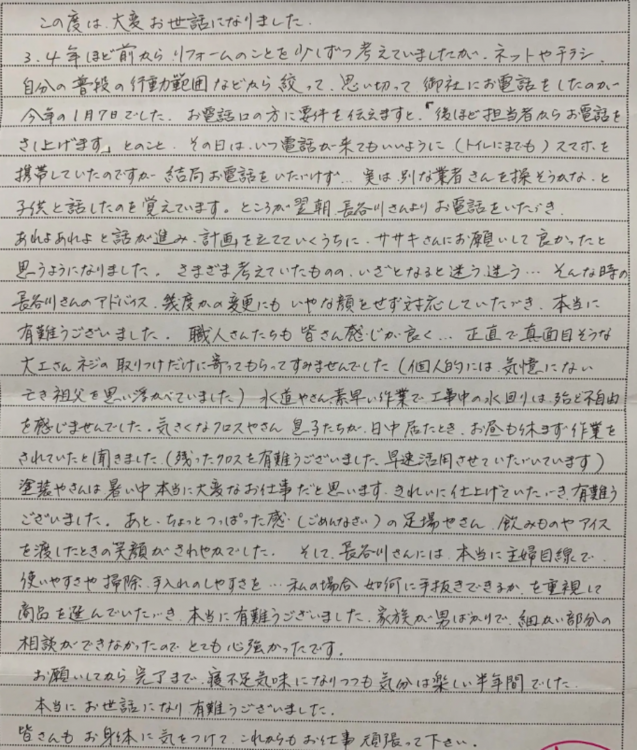 この度は、大変お世話になりました。
3.4年ほど前から リフォームのことを少しずつ考えていましたが、ネットやチラシ、
自分の普段の行動範囲などから絞って、思い切って 御社にお電話をしたのが
今年の1月7日でした。お電話口の方に要件を伝えますと、「後ほど担当者からお電話を
さし上げます」とのこと、その日は、いつ電話が来てもいいように(トイレにまでも)スマホを
携帯していたのですが 結局お電話をいただけず… 実は 別な業者さんを探そうかな、と
子供と話したのを覚えています。ところが翌朝、長谷川さんよりお電話をいただき、
あれよあれよと話が進み、計画を立てていくうちに、ササキさんにお願いして良かったと
思うようになりました。さまざま考えていたものの、いざとなると迷う、迷う… そんな時の
長谷川さんのアドバイス、幾度かの変更にも いやな顔をせず対応していただき、本当に
有難うございました。職人さんたちも皆さん感じが良く… 正直で真面目そうな
大工さん ネジの取りつけだけに寄ってもらってすみませんでした(個人的には、気憶にない
亡き祖父を思い浮かべていました) 水道やさん素早い作業で、工事中の水回りは、殆ど不自由
を感じませんでした。気さくなクロスやさん 息子たちが、日中居たとき、お昼も休まず作業を
されていたと聞きました、(残ったクロスを有難うございました、早速活用させていただいています)
塗装やさんは暑い中 本当に大変なお仕事だと思います、きれいに仕上げていただき、有難う
ございました。あと、ちょっとつっぱった感(ごめんなさい)の足場やさん、飲みものやアイス
を渡したときの笑顔がさわやかでした。そして、長谷川さんには、本当に主婦目線で、
使いやすさや掃除、手入れのしやすさを… 私の場合 如何に手抜きできるか、を重視して
商品を選んでいただき、本当に有難うございました、家族が男ばかりで、細かい部分の
相談ができなかったので とても心強かったです。
お願いしてから 完了まで、寝不足気味になりつつも 気分は楽しい半年間でした、
本当に お世話になり 有難うございました、
皆さんも お身体に気をつけて、これからもお仕事 頑張って下さい。